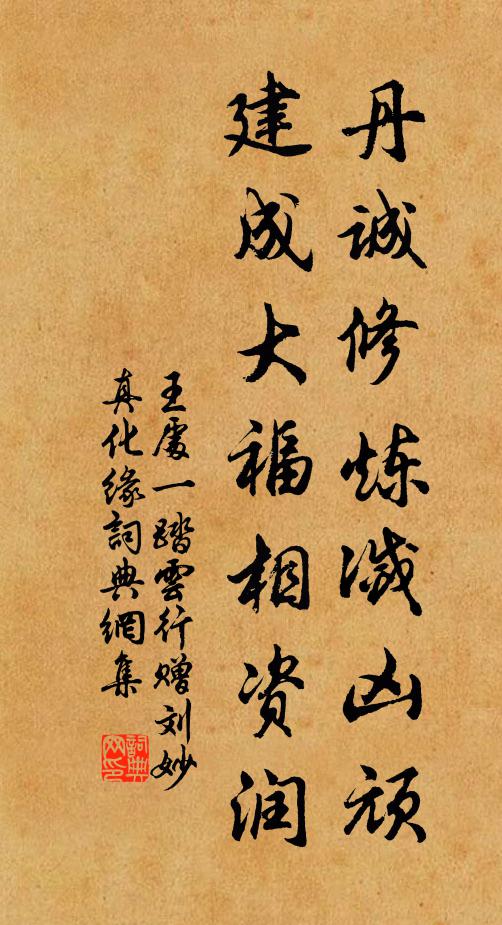 丹诚修炼滅凶顽
建成大福相资润
王處一踏雲行赠刘妙
真化缘詞典網集
詞典
网印